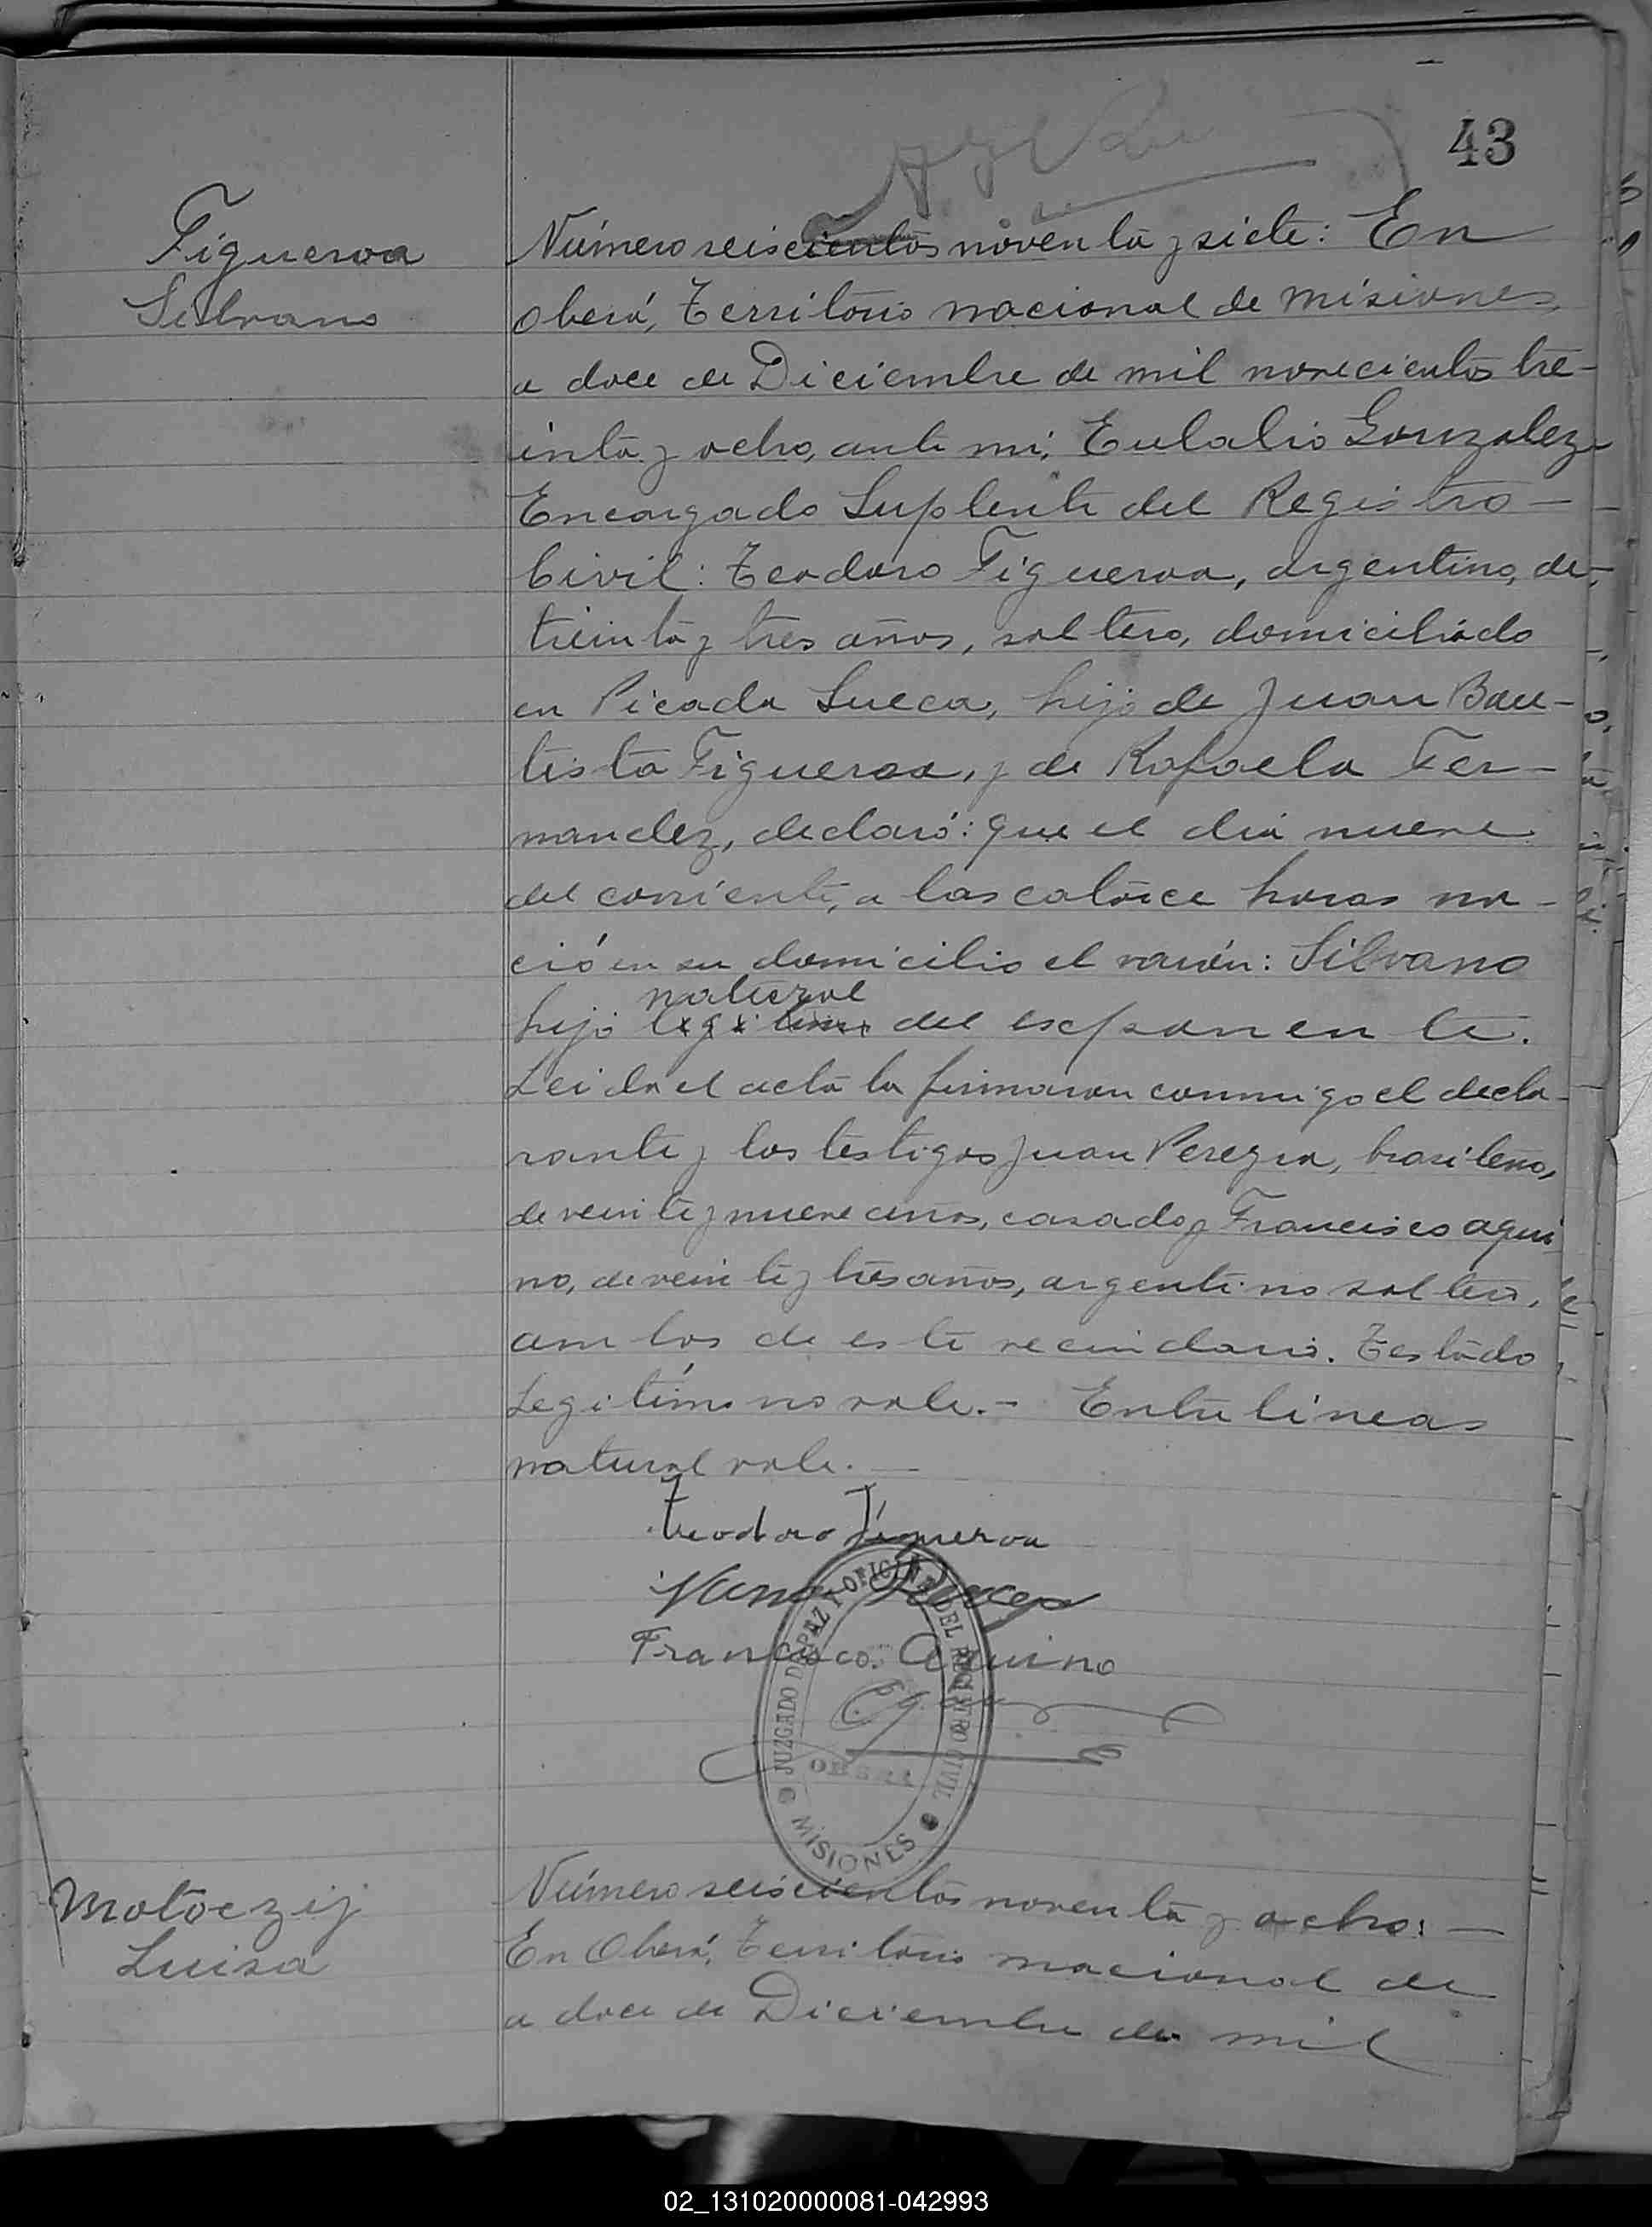 43
Figueroa
Silvano
Número seiscientos noventa y siete: En
Oberá, Territorio nacional de Misiones,
a doce de Diciembre de mil novecientos tre-
inta y ocho, ante mi, Eulalio Gonzalez
Encargado Suplente del Registro —
Civil: Teodoro Figueroa, argentino, de
treinta y tres años, soltero, domiciliado
en Picada Sueca, hijo de Juan Bau-
tista Figueroa, y de Rafaela Fer-
nandez, declaró: que el dia nueve
del corriente, a las catorce horas na-
ció en su domicilio el varón: Silvano
natural
hijo legitimo del esponente.
Leida el acta la firmaron conmigo el decla-
rante y los testigos Juan Pereyra, brasileno,
de veinte y nueve años, casado y Francisco Aqui
no, de veinte y tres años, argentino soltero,
ambos de este vecindario. Testado
Legitimo no vale.- Entre lineas
natural vale. —
Teodoro Figueroa
Francisco. Aquino
JUZGADO DE PAZ Y OFICINA DEL REGISTRO CIVIL
OBERA
MISIONES
Motoczij
Luisa
Número seiscientos noventa y ocho: —
En Oberá, Territorio nacional de
a doce de Diciembre de mil
02_131020000081-042993